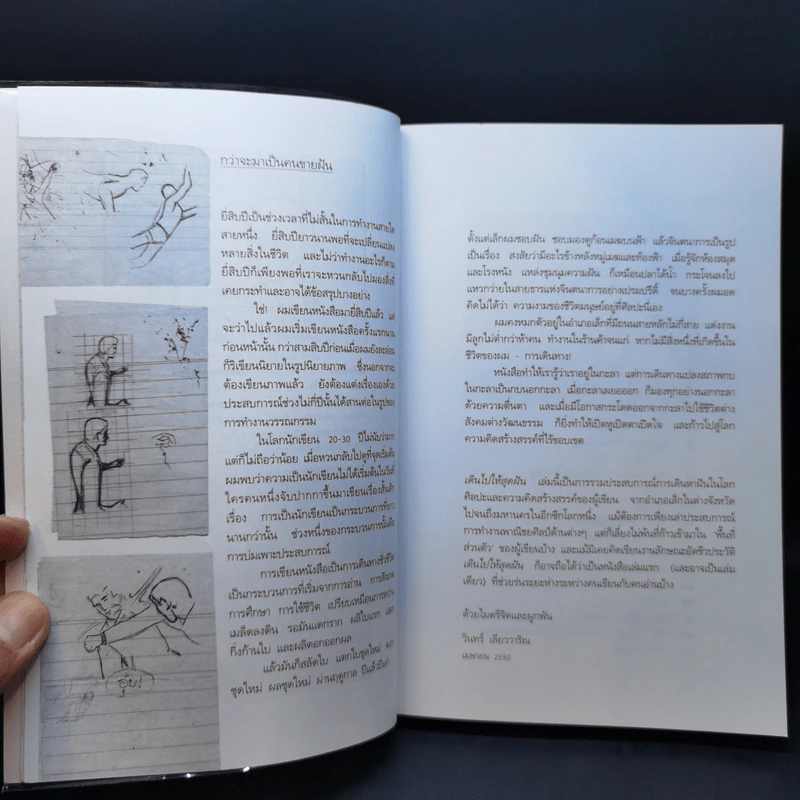 กว่าจะมาเป็นคนขายฝัน
ยี่สิบปีเป็นช่วงเวลาที่ไม่สั้นในการทำงานสายใด
สายหนึ่ง ยี่สิบปียาวนานพอที่จะเปลี่ยนแปลง
หลายสิ่งในชีวิต และไม่ว่าทำงานอะไรก็ตาม
ยี่สิบปีก็เพียงพอที่เราจะหวนกลับไปมองสิ่งที่
เคยกระทำและอาจได้ข้อสรุปบางอย่าง
ใช่! ผมเขียนหนังสือมายี่สิบปีแล้ว แต่
จะว่าไปแล้วผมเริ่มเขียนหนังสือครั้งแรกนาน
ก่อนหน้านั้น กว่าสามสิบปีก่อนเมื่อผมยังละอ่อน
ก็ริเขียนนิยายในรูปนิยายภาพ ซึ่งนอกจากจะ
ต้องเขียนภาพแล้ว ยังต้องแต่งเรื่องเองด้วย
ประสบการณ์ช่วงไม่กี่ปีนั้นได้สานต่อในรูปของ
การทำงานวรรณกรรม
ในโลกนักเขียน 20-30 ปีไม่นับว่ามาก
แต่ก็ไม่ถือว่าน้อย เมื่อหวนกลับไปดูที่จุดเริ่มต้น
ผมพบว่าความเป็นนักเขียนไม่ได้เริ่มต้นในวันที่
ใครคนหนึ่งจับปากกาขึ้นมาเขียนเรื่องสั้นสัก
เรื่อง การเป็นนักเขียนเป็นกระบวนการที่ยาว
นานกว่านั้น ช่วงหนึ่งของกระบวนการนั้นคือ
การบ่มเพาะประสบการณ์
การเขียนหนังสือเป็นการเดินทางชั่วชีวิต
เป็นกระบวนการที่เริ่มจากการอ่าน การสังเกต
การศึกษา การใช้ชีวิต เปรียบเหมือนการหว่าน
เมล็ดลงดิน รอมันแตกราก ผลิใบแรก แตก
กิ่งก้านใบ และผลิดอกออกผล
แล้วมันก็สลัดใบ แตกใบชุดใหม่ ดอก
ชุดใหม่ ผลชุดใหม่ ผ่านฤดูกาล ปีแล้วปีเล่า
อุ๊บ!
ตั้งแต่เล็กผมชอบฝัน ชอบมองดูก้อนเมฆบนฟ้า แล้วจินตนาการเป็นรูป
เป็นเรื่อง สงสัยว่ามีอะไรข้างหลังหมู่เมฆและท้องฟ้า เมื่อรู้จักห้องสมุด
และโรงหนัง แหล่งชุมนุมความฝัน ก็เหมือนปลาได้น้ำ กระโจนลงไป
แหวกว่ายในสายธารแห่งจินตนาการอย่างเปรมปรีดิ์ จนบางครั้งผมอด
คิดไม่ได้ว่า ความงามของชีวิตมนุษย์อยู่ที่ศิลปะนี่เอง
ผมคงหมกตัวอยู่ในอำเภอเล็กที่มีถนนสายหลักไม่กี่สาย แต่งงาน
มีลูกไม่ต่ำกว่าห้าคน ทำงานในร้านค้าจนแก่ หากไม่มีสิ่งหนึ่งที่เกิดขึ้นใน
ชีวิตของผม - การเดินทาง!
หนังสือทำให้เรารู้ว่าเราอยู่ในกะลา แต่การเดินทางแปลงสภาพกบ
ในกะลาเป็นกบนอกกะลา เมื่อกะลาเผยอออก ก็มองทุกอย่างนอกกะลา
ด้วยความตื่นตา และเมื่อมีโอกาสกระโดดออกจากกะลาไปใช้ชีวิตต่าง
สังคมต่างวัฒนธรรม ก็ยิ่งทำให้เปิดหูเปิดตาเปิดใจ และก้าวไปสู่โลก
ความคิดสร้างสรรค์ที่ไร้ขอบเขต
เดินไปให้สุดฝัน เล่มนี้เป็นการรวมประสบการณ์การเดินหาฝันในโลก
ศิลปะและความคิดสร้างสรรค์ของผู้เขียน จากอำเภอเล็กในต่างจังหวัด
ไปจนถึงมหานครในอีกซีกโลกหนึ่ง แม้ต้องการเพียงเล่าประสบการณ์
การทำงานพาณิชยศิลป์ด้านต่างๆ แต่ก็เลี่ยงไม่พ้นที่ก้าวเข้ามาใน 'พื้นที่
ส่วนตัว' ของผู้เขียนบ้าง และแม้มิเคยคิดเขียนงานลักษณะอัตชีวประวัติ
เดินไปให้สุดฝัน ก็อาจถือได้ว่าเป็นหนังสือเล่มแรก (และอาจเป็นเล่ม
เดียว) ที่ช่วยร่นระยะห่างระหว่างคนเขียนกับคนอ่านบ้าง
ด้วยไมตรีจิตและผูกพัน
วินทร์ เลียววาริณ
เมษายน 2550